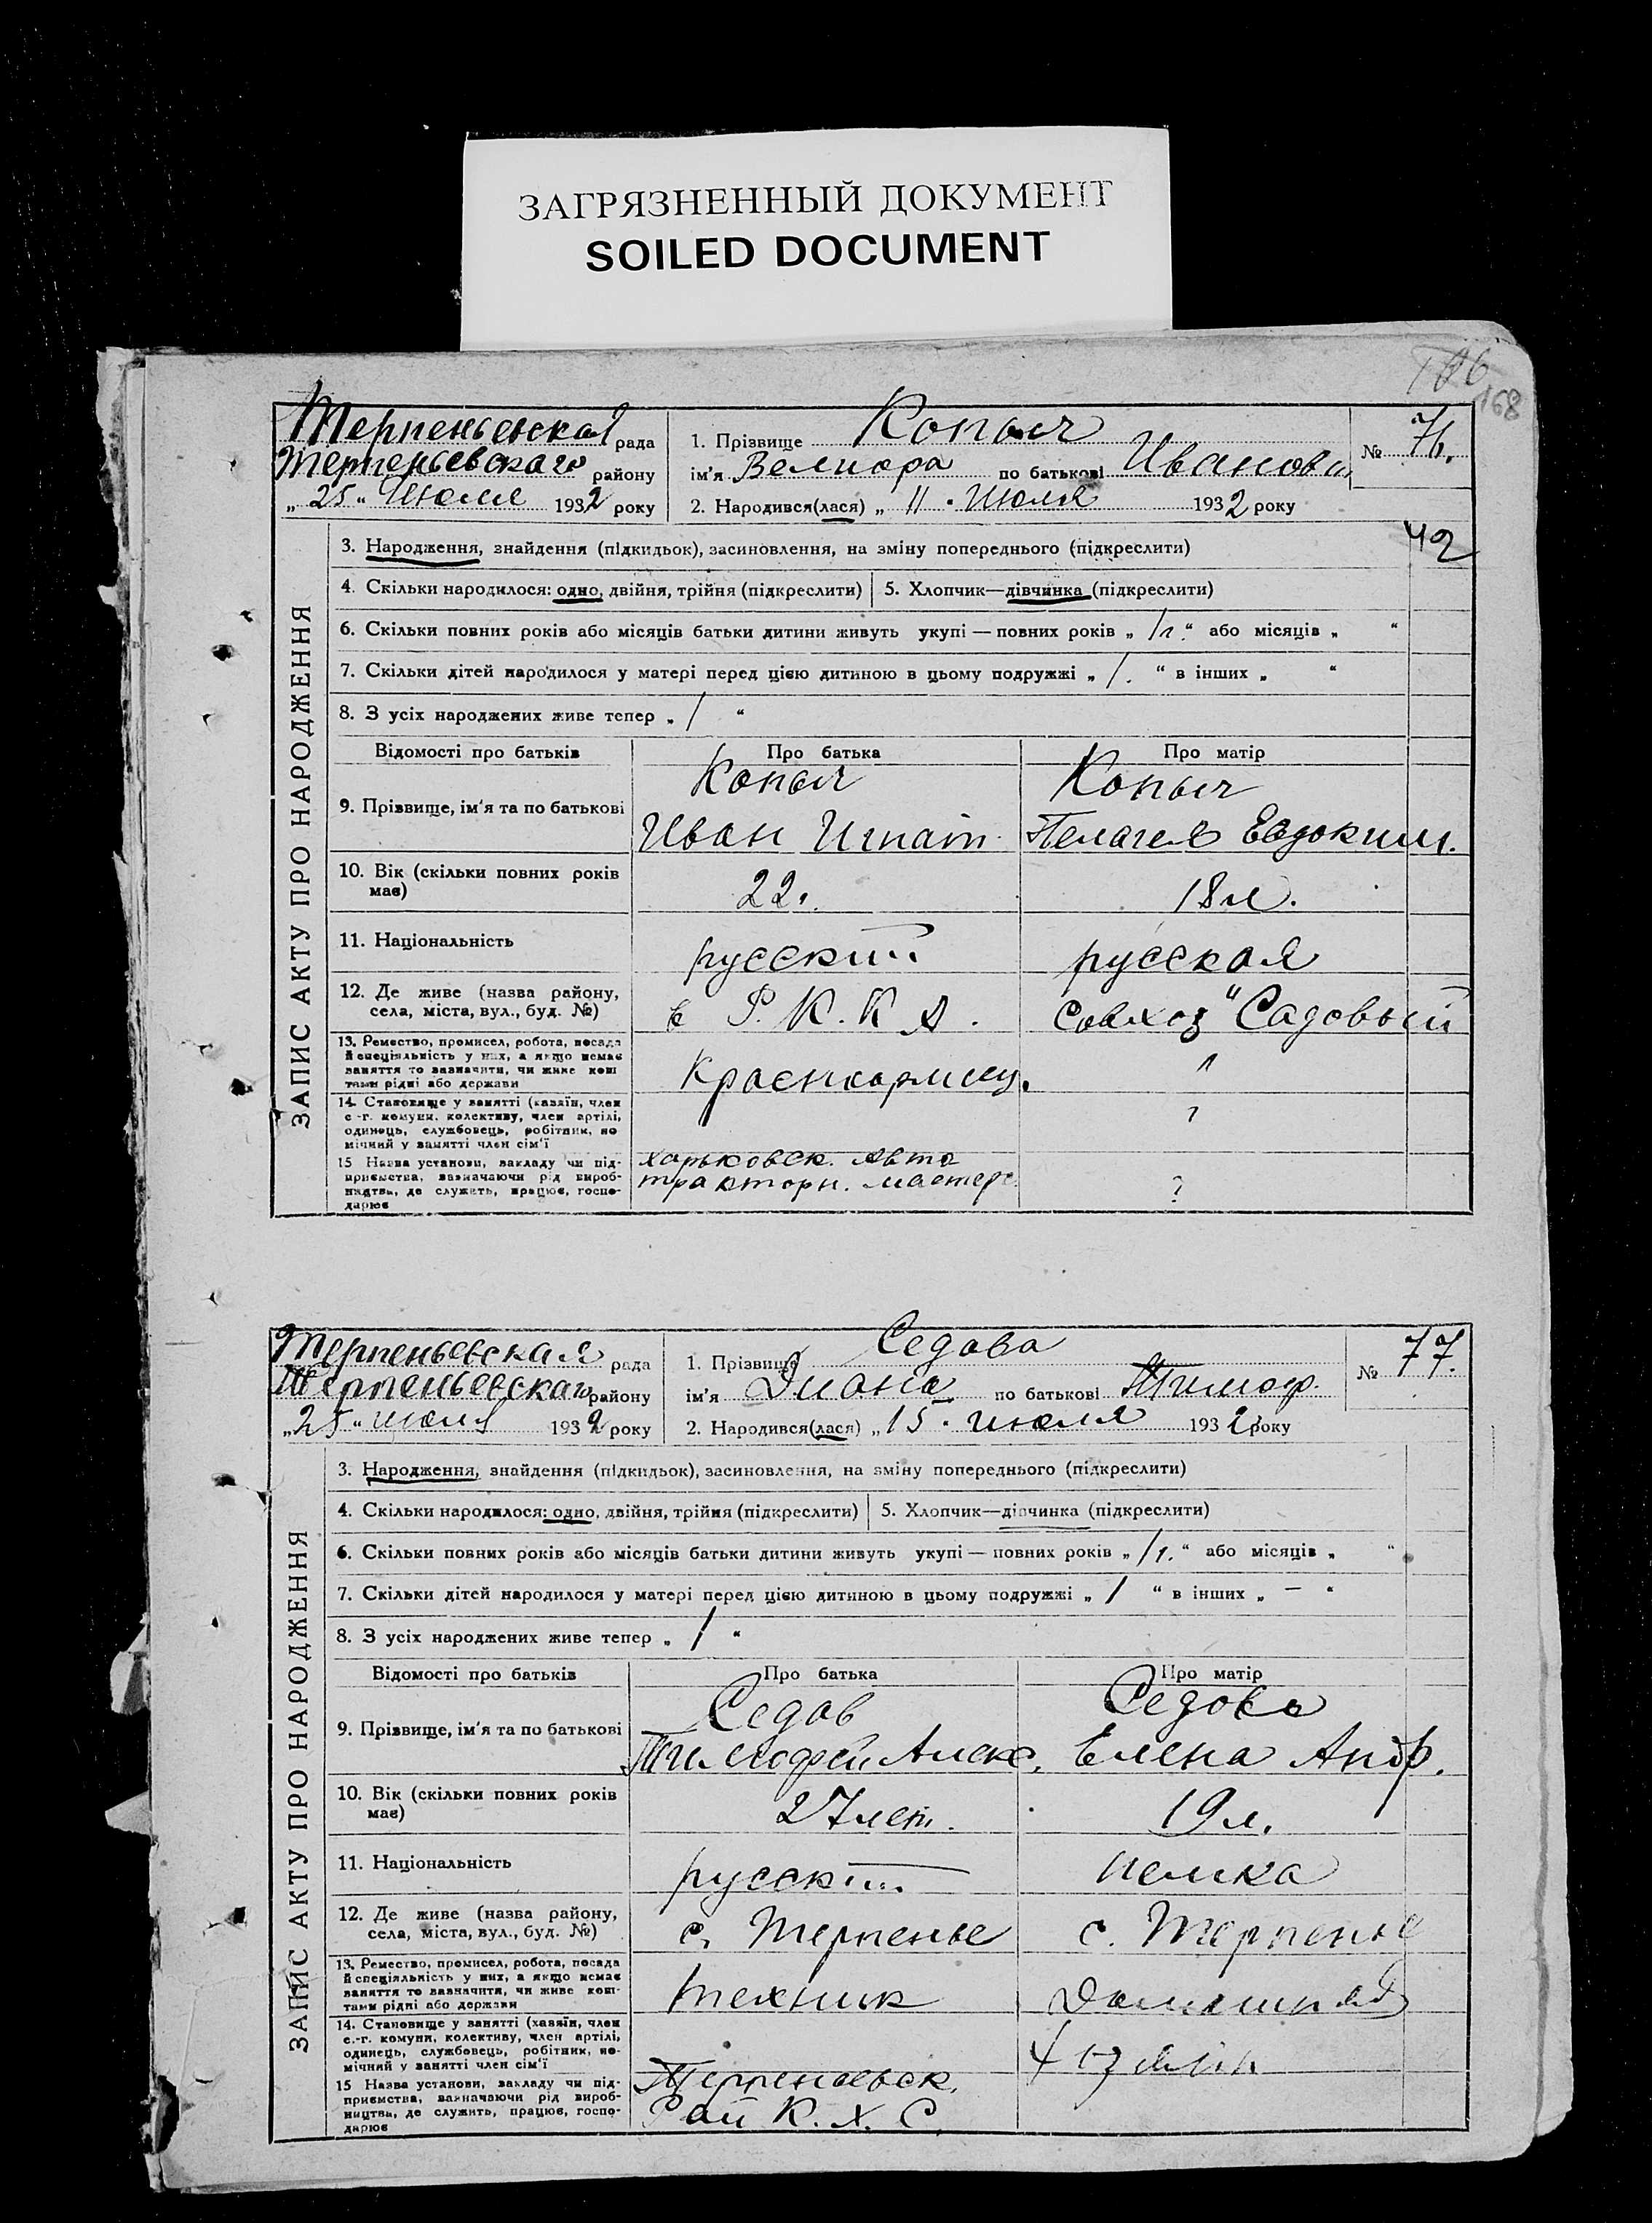 ЗАГРЯЗНЕННЫЙ ДОКУМЕНТ
SOILED DOCUMENT
168
Терпеньевская рада
Терпеньевского району
„25" Июля 1932 року
1. Прізвище Копыл
ім'я Велиора по батькові Иванова
2. Народився(лася) „11" Июля 1932 року
№ 76.
42
ЗАПИС АКТУ ПРО НАРОДЖЕННЯ
3. Народження, знайдення (підкидьок), засиновлення, на зміну попереднього (підкреслити)
4. Скільки народилося: одно, двійня, трійня (підкреслити) 5. Хлопчик—дівчинка (підкреслити)
6. Скільки повних років або місяців батьки дитини живуть укупі — повних років „ 1г. " або місяців „ "
7. Скільки дітей народилося у матері перед цією дитиною в цьому подружжі „ 1. " в інших „ "
8. З усіх народжених живе тепер „ 1 "
Відомості про батьків Про батька Про матір
9. Прізвище, ім'я та по батькові Копыл Копыл
Иван Игнат. Пелагея Евдоким.
10. Вік (скільки повних років має) 22. 18 л.
11. Національність русский русская
12. Де живе (назва району, села, міста, вул., буд. №) в Р.К.К.А. Совхоз "Садовый
13. Ремество, промисел, робота, посада й спеціяльність у них, а якщо немає заняття то зазначити, чи живе коштами рідні або держави Красноармеец.
14. Становище у занятті (хазяїн, член с.-г. комуни, колективу, член артілі, одинець, службовець, робітник, помічний у занятті член сім'ї ?
15 Назва установи, закладу чи підприємства, зазначаючи рід виробництва, де служить, працює, господарює Харьковск. авто тракторн. мастерс. ?
Терпеньевская рада
Терпеньевского району
„25" июля 1932 року
1. Прізвище Седова
ім'я Диана по батькові Тимоф.
2. Народився(лася) „15" июля 1932 року
№ 77.
ЗАПИС АКТУ ПРО НАРОДЖЕННЯ
3. Народження, знайдення (підкидьок), засиновлення, на зміну попереднього (підкреслити)
4. Скільки народилося: одно, двійня, трійня (підкреслити) 5. Хлопчик—дівчинка (підкреслити)
6. Скільки повних років або місяців батьки дитини живуть укупі — повних років „ 1г. " або місяців „ "
7. Скільки дітей народилося у матері перед цією дитиною в цьому подружжі „ 1 " в інших „ — "
8. З усіх народжених живе тепер „ 1 "
Відомості про батьків Про батька Про матір
9. Прізвище, ім'я та по батькові Седов Седова
Тимофей Алекс. Елена Андр.
10. Вік (скільки повних років має) 27 лет. 19 л.
11. Національність русский немка
12. Де живе (назва району, села, міста, вул., буд. №) с. Терпенье с. Терпенье
13. Ремество, промисел, робота, посада й спеціяльність у них, а якщо немає заняття то зазначити, чи живе коштами рідні або держави техник Домашняя
14. Становище у занятті (хазяїн, член с.-г. комуни, колективу, член артілі, одинець, службовець, робітник, помічний у занятті член сім'ї
15 Назва установи, закладу чи підприємства, зазначаючи рід виробництва, де служить, працює, господарює Терпеньевск. Рай К.Х.С.